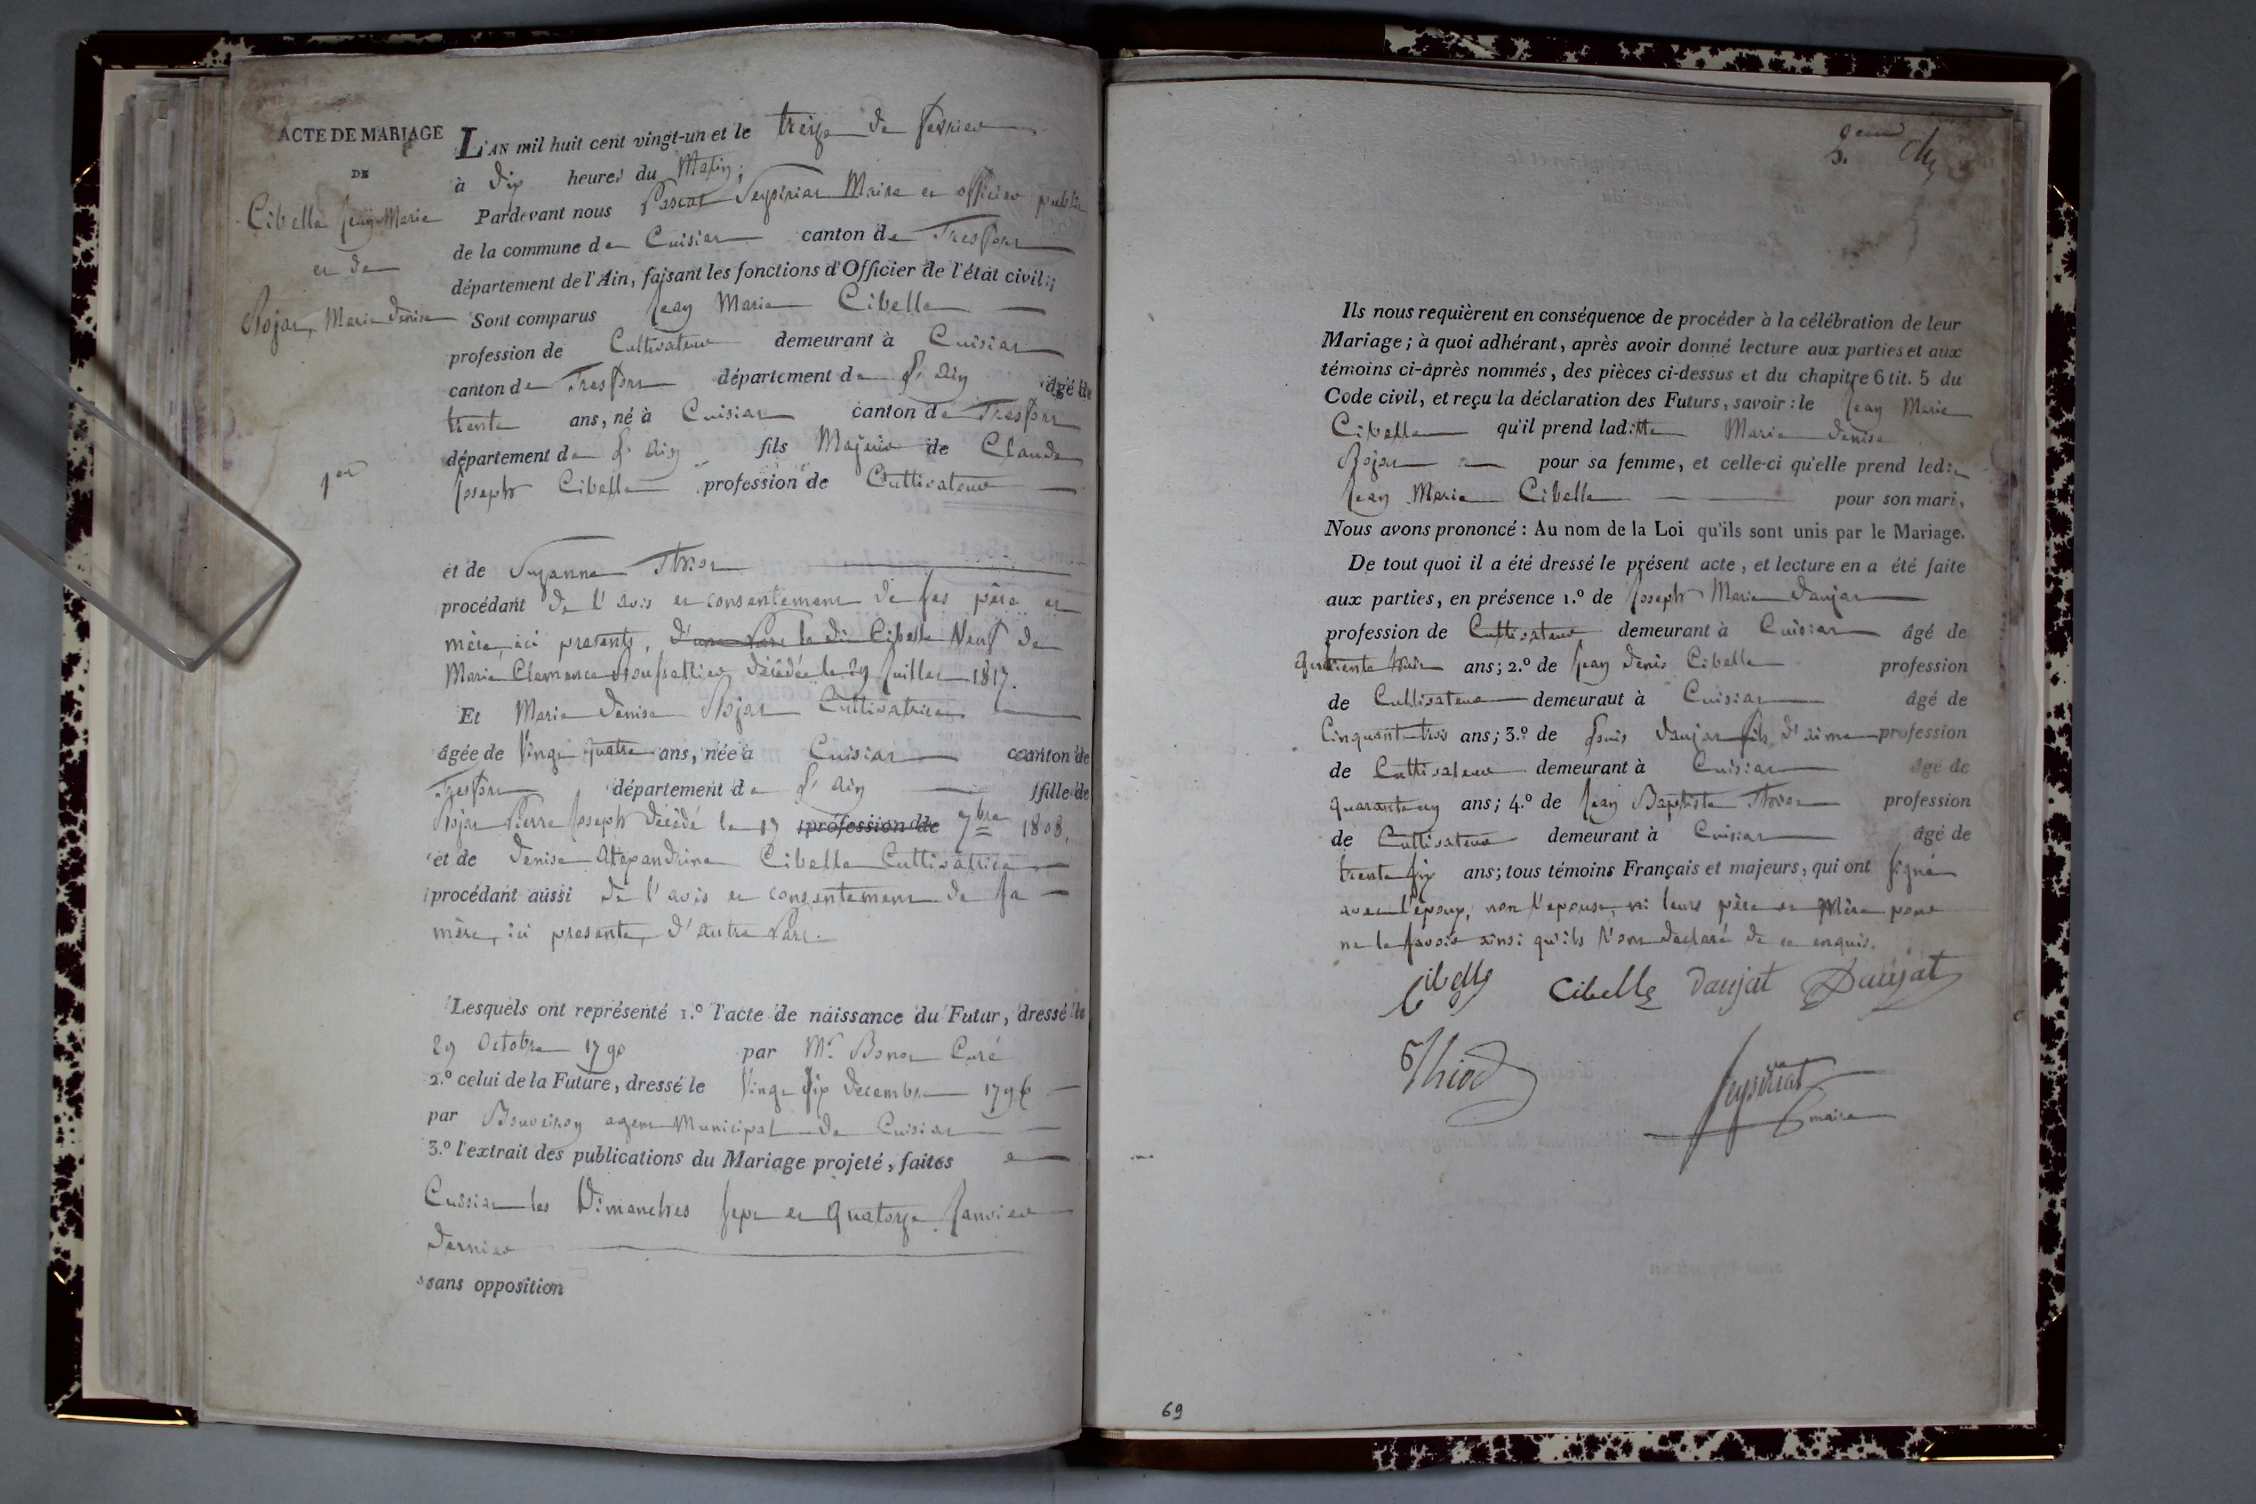 ACTE DE MARIAGE
DE
Cibelle Jean Marie
et de
Rojat, Marie denise
1er
L'AN mil huit cent vingt-un et le treize de fevrier
à dix heures du Matin;
Pardevant nous Pascal Seyssiriat Maire et officier public
de la commune de Cuisiat canton de Treffort
département de l'Ain, faisant les fonctions d'Officier de l'état civil;
Sont comparus Jean Marie Cibelle
profession de Cultivateur demeurant à Cuisiat
canton de Treffort département de L'Ain âgé de
trente ans, né à Cuisiat canton de Treffort
département de L'Ain fils Majeur de Claude
Joseph Cibelle profession de Cultivateur
et de Suzanne Thiod
procédant de l'avis et consentement de ses père et
mère, ici presents, d'une Part le dit Cibelle Veuf de
Marie Clemence décédée le 29 Juillet 1817.
Et Marie denise Rojat Cultivatrice
âgée de Vingt quatre ans, née à Cuisiat canton de
Treffort département de L'Ain fille de
Rojat Pierre Joseph décédé le 17 profession de 7bre 1808,
et de denise Alexandrine Cibelle Cultivatrice
procédant aussi de l'avis et consentement de sa
mère, ici presente, d'autre Part.
Lesquels ont représenté 1.º l'acte de naissance du Futur, dressé le
29 Octobre 1790 par Mr. Curé
2.º celui de la Future, dressé le Vingt six decembre 1796
par Bouveiron agent Municipal de Cuisiat
3.º l'extrait des publications du Mariage projeté, faites a
Cuisiat les Dimanches sept et quatorze Janvier
dernier
sans opposition
Ils nous requièrent en conséquence de procéder à la célébration de leur
Mariage; à quoi adhérant, après avoir donné lecture aux parties et aux
témoins ci-après nommés, des pièces ci-dessus et du chapitre 6 tit. 5 du
Code civil, et reçu la déclaration des Futurs, savoir: le Jean Marie
Cibelle qu'il prend laditte Marie denise
Rojat pour sa femme, et celle-ci qu'elle prend led:
Jean Marie Cibelle pour son mari,
Nous avons prononcé: Au nom de la Loi qu'ils sont unis par le Mariage.
De tout quoi il a été dressé le présent acte, et lecture en a été faite
aux parties, en présence 1.º de Joseph Marie Daujat
profession de Cultivateur demeurant à Cuisiat âgé de
ans; 2.º de Jean denis Cibelle profession
de Cultivateur demeuraut à Cuisiat âgé de
Cinquante trois ans; 3.º de Louis Daujat fils d'aimé profession
de Cultivateur demeurant à Cuisiat âgé de
quarante un ans; 4.º de Jean Baptiste Thiod profession
de Cultivateur demeurant à Cuisiat âgé de
trente six ans; tous témoins Français et majeurs, qui ont signé
avec l'époux, non l'épouse, ni leurs père et Mère pour
ne le savoir ainsi qu'ils l'ont declaré de ce enquis.
Cibelle Cibelle Daujat Daujat
Thiod
Seyssiriat
maire
69